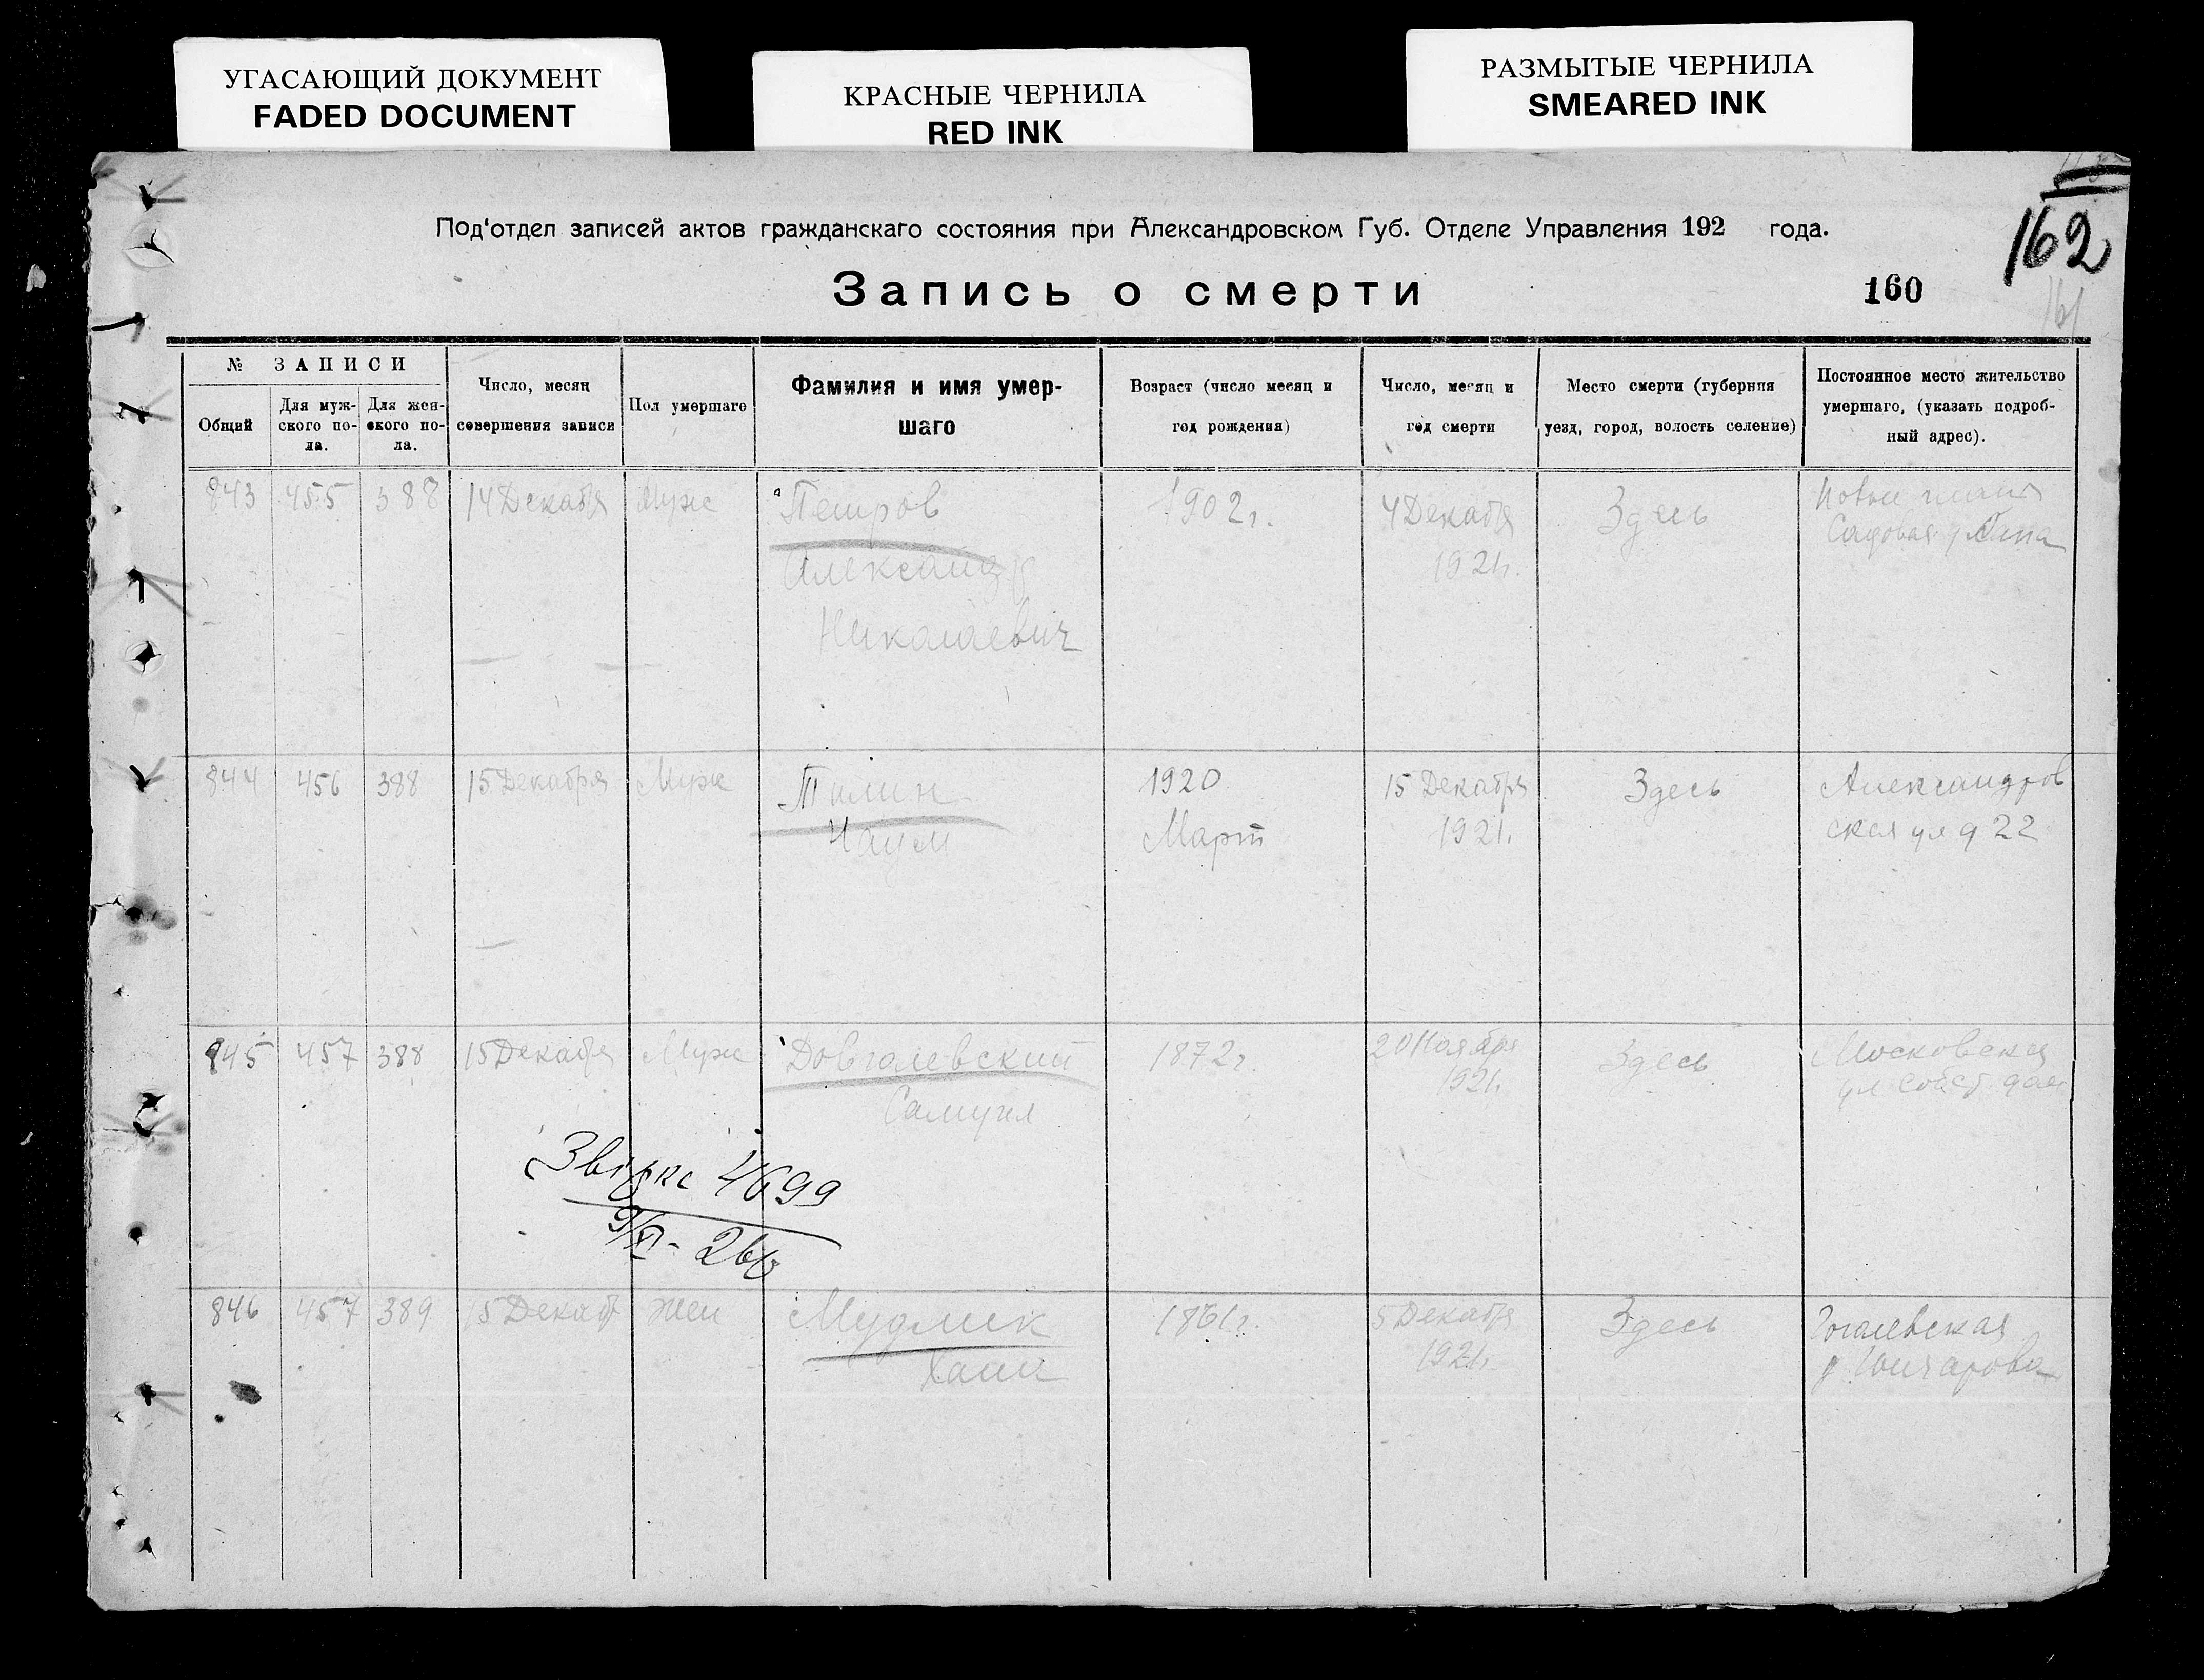 УГАСАЮЩИЙ ДОКУМЕНТ
FADED DOCUMENT
КРАСНЫЕ ЧЕРНИЛА
RED INK
РАЗМЫТЫЕ ЧЕРНИЛА
SMEARED INK
Под'отдел записей актов гражданскаго состояния при Александровском Губ. Отделе Управления 192 года.
162
Запись о смерти
160
161
№ ЗАПИСИ
Общий
Для муж-
ского по-
ла.
Для жен-
ского по-
ла.
Число, месяц
совершения записи
Пол умершаго
Фамилия и имя умер-
шаго
Возраст (число месяц и
год рождения)
Число, месяц и
год смерти
Место смерти (губерния
уезд, город, волость селение)
Постоянное место жительство
умершаго, (указать подроб-
ный адрес).
843 455 388 14 Декабя Муж Петров 1902г. 4 Декабя Здесь
Садовая
Александр 1921г.
Николаевич
844 456 388 15 Декабря Муж 1920 15 Декабря Здесь Александров
Наум Март 1921. ская ул д 22
845 457 388 15 Декабя Муж Довгалевский 1872г. 20 Ноября Здесь Московская
1921г. ул собст. дом
Самуил
4699
9/XI - 26
846 457 389 15 Декаб Жен Мудлик 1861г. 5 Декабя Здесь Гогалевская
1921г. д Гончарова